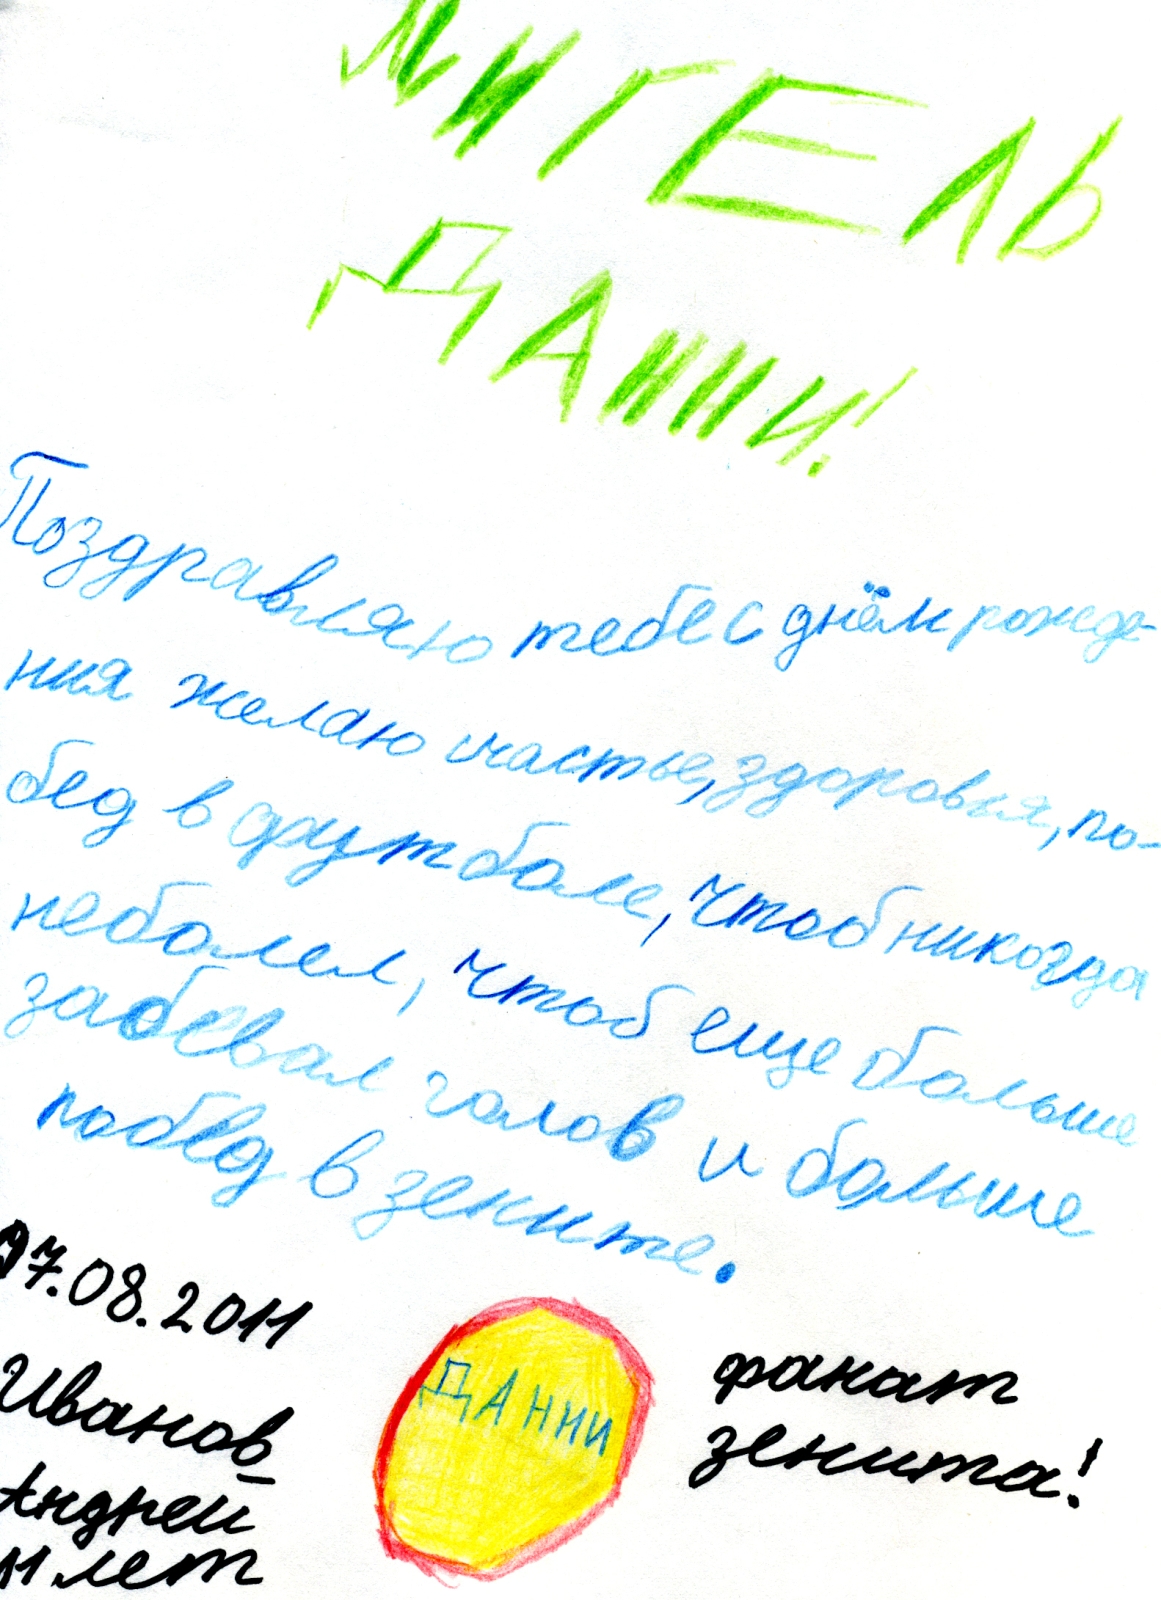 МИГЕЛЬ
ДАННИ!
Поздравляю тебе с днём рожде-
ния желаю счастье, здоровья, по-
бед в футболе, чтоб никогда
неболел, чтоб еще больше
забевал голов и больше
побед в зените.
07.08.2011
Иванов
Андреи
11 лет
ДАННИ
фанат
зенита!